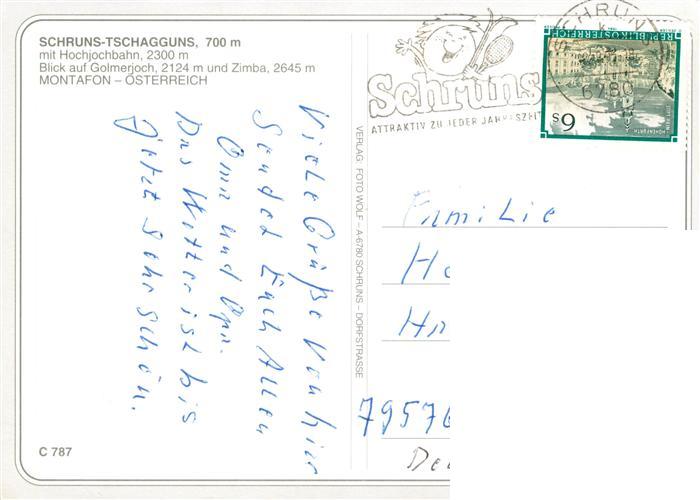 SCHRUNS-TSCHAGGUNS, 700 m
mit Hochjochbahn, 2300 m
Blick auf Golmerjoch, 2124 m und Zimba, 2645 m
MONTAFON – ÖSTERREICH
Viele Grüße von hier
Sendet Euch Allen
Oma und Opa.
Das Wetter ist bis
Jetzt Sehr Schön.
C 787
VERLAG: FOTO WOLF – A-6780 SCHRUNS – DORFSTRASSE
Schruns
ATTRAKTIV ZU JEDER JAHRESZEIT
SCHRUNS
6780
REPUBLIK ÖSTERREICH
S 6
Familie
79576